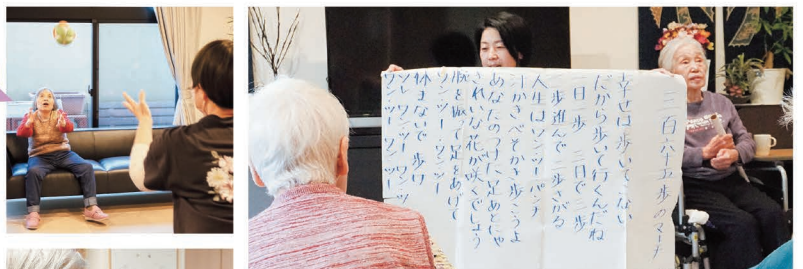 三百六十五歩のマーチ
幸せは歩いてこない
だから歩いて行くんだね
一日一歩 三日で三歩
三歩進んで二歩さがる
人生はワンツーパンチ
汗かきべそかき歩こうよ
あなたのつけた足あとにゃ
きれいな花が咲くでしょう
腕を振って足をあげて
ワンツー ワンツー
休まないで歩け
ソレ ワンツー ワンツー
ワンツー ワンツー